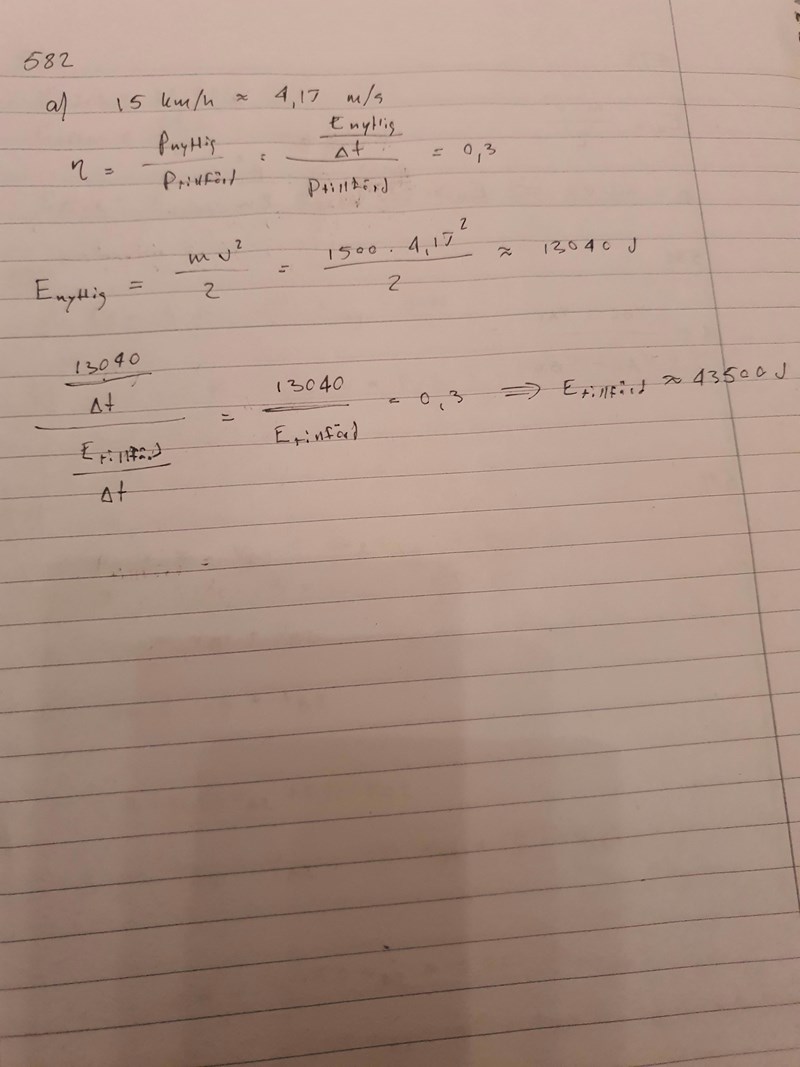 582
a) 15 km/h ≈ 4,17 m/s
η = Pnyttig / Ptillförd = (Enyttig / Δt) / Ptillförd = 0,3
Enyttig = mv² / 2 = 1500 · 4,17² / 2 ≈ 13040 J
(13040 / Δt) / (Etillförd / Δt) = 13040 / Etillförd = 0,3 ⟹ Etillförd ≈ 43500 J